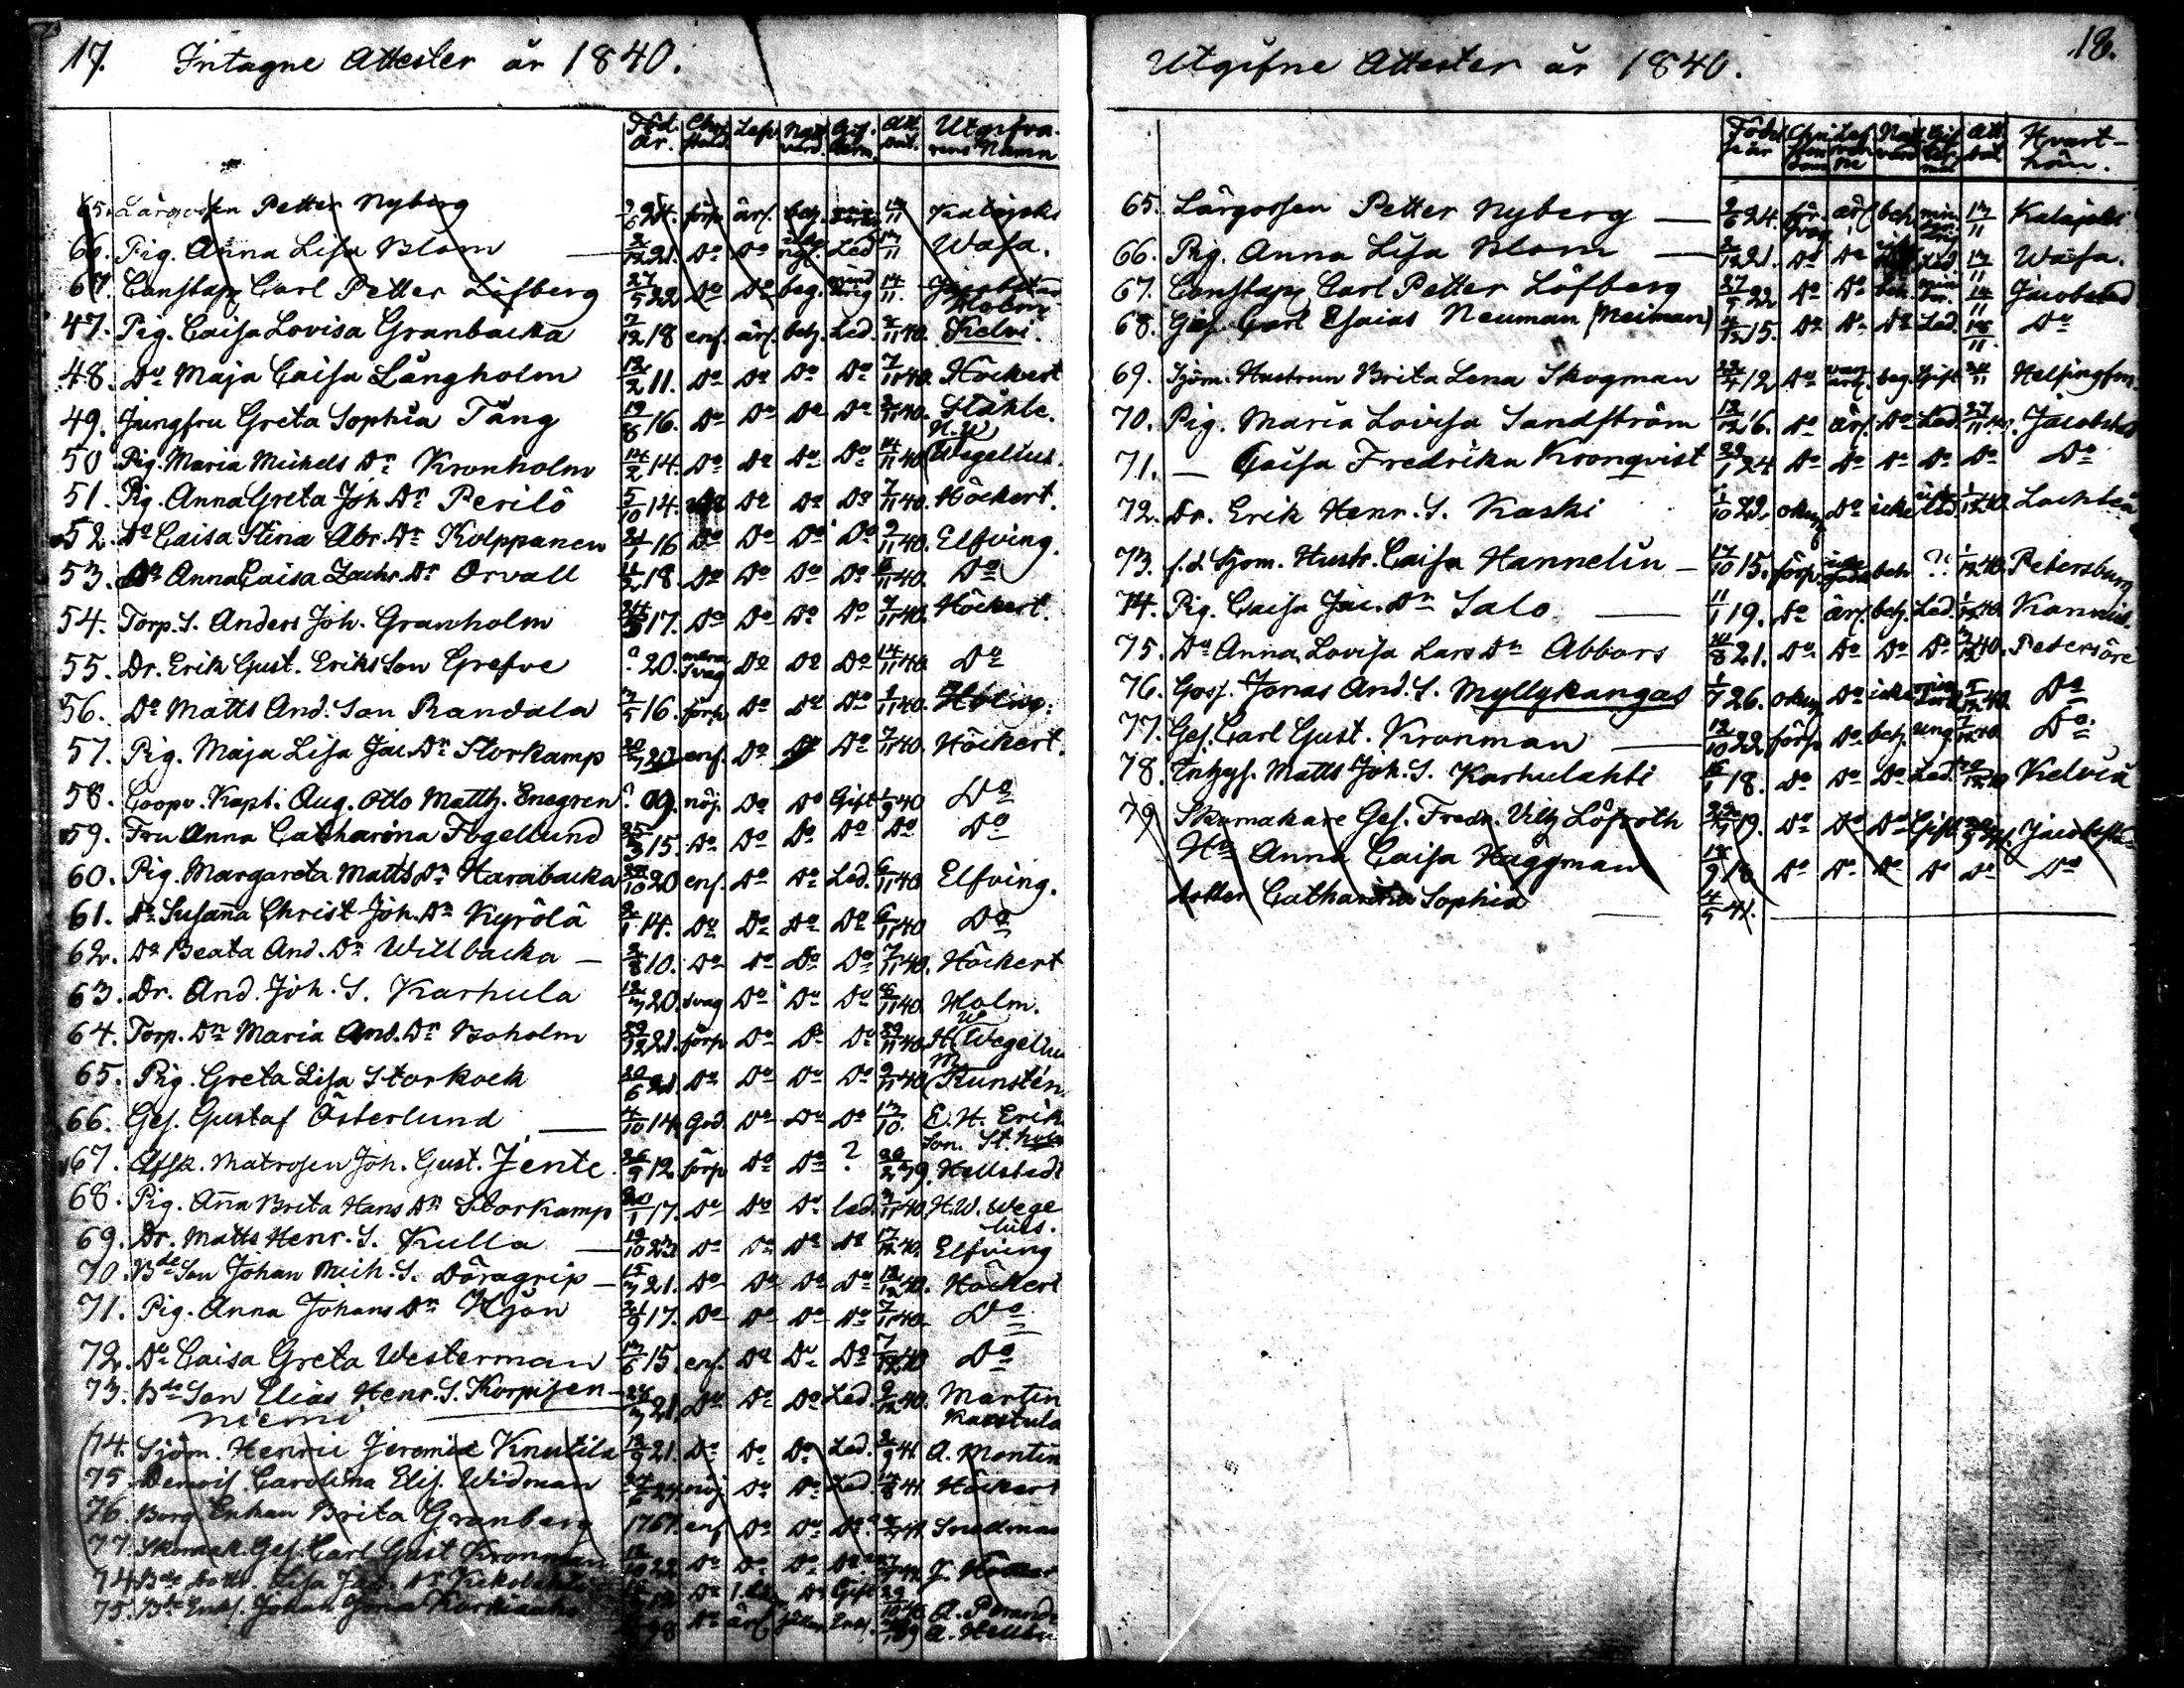 17. Intagne Attester år 1840.
Föd. År. Chr. Läsn. Nattvård. Gift. Att. dat. Utgifvarens Namn
65. Lärgossen Petter Nyberg 2/6 24. försv. ärl. beh. 14/11 Kalajoki
66. Pig. Anna Lisa Blom — 2/12 21. Do Do Led 14/11 Wasa.
67. Constap. Carl Petter Löfberg 27/5 22 Do Do beg. 14/11.
47. Pig. Caisa Lovisa Granbacka 7/12 18 enf. ärl. beh. Led. 2/11 40. Kelvi.
48. Do Maja Caisa Långholm 12/2 11. Do Do Do Do 7/11 40. Höckert
49. Jungfru Greta Sophia Tång 19/8 16. Do Do Do Do 2/11 40. Ståhle.
50 Pig. Maria Michels Dr Kronholm 14/2 14. Do Do Do Do 14/11 40 H. W. Wegelius.
51. Pig. Anna Greta Joh. Dr Perilö 5/10 14. Do Do Do 7/11 40. Höckert.
52. Do Caisa Stina Abr. Dr Kolppanen 21/1 16 Do Do Do Do 9/11 40. Elfving.
53. Do Anna Caisa Zachr. Dr Orvall 11/2 18. Do Do Do Do 6/11 40. Do
54. Torp. S. Anders Joh. Granholm 24/3 17. Do Do Do Do 7/11 40. Höckert.
55. Dr. Erik Gust. Eriks Son Grefve ? 20. svag Do Do Do 14/11 40. Do
56. Do Matts And. Son Randala 3/5 16. försv Do Do Do 1/11 40.
57. Pig. Maja Lisa Jac. Dr Storkamp 20/3 20 enf. Do Do Do 7/11 40. Höckert.
58. Coopv. Kapt. Aug. Otto Matth. Enegren ? 09. nöj. Do Do Gift 1/9 40 Do
59. Fru Anna Catharina Fogellund 25/3 15. Do Do Do Do Do Do
60. Pig. Margareta Matts Dr Harabacka 22/10 20 enf. Do Do Led. 6/11 40 Elfving.
61. Do Susana Christ Joh. Dr Kyrölä 2/1 14. Do Do Do Do 6/11 40 Do
62. Do Beata And. Dr Willbacka — 2/8 10. Do Do Do Do 7/11 40. Höckert
63. Dr. And. Joh. S. Karhula 12/3 20. svag Do Do Do 8/11 40. Holm.
64. Torp. Dr Maria And. Dr Boholm 29/12 21. försv Do Do Do 29/11 40. H W Wegelius
65. Pig. Greta Lisa Storkock 20/6 21. Do Do Do Do 9/11 40 M. Kunstén
66. Ges. Gustaf Österlund — 4/10 14. God. Do Do Do 13/10. E. H. Erik
son. St. holm
67. Afsk. Matrosen Joh. Gust. Jente 26/9 12. försv Do Do ? 20/2 39. Hellstedt
68. Pig. Ana Brita Hans Dr Storkamp 20/1 17. Do Do Do led. 3/11 40. H. W. Wege
lius.
69. Dr. Matts Henr. S. Kulla — 19/10 23. Do Do Do Do 17/12 40. Elfving
70. Bde Son Johan Mich. S. Döragrip — 15/3 21. Do Do Do Do 12/12 40. Höckert
71. Pig. Anna Johans Dr Hjon 21/9 17. Do Do Do Do 7/11 40. Do
72. Do Caisa Greta Westerman 13/6 15. enf. Do Do Do 7/12 40 Do
73. Bde Son Elias Henr. S. Korpisen- 28/3 21. Do Do Do Led. 9/12 40. Martin
niemi Karstula
74. Sjöm. Henric Jeremia Knutila 12/9 21. Do Do Do Led. 2/9 41 A. Montin
75 Demois. Carolina Elis. Widman 24/6 24. nöj Do Do Led. 14/8 41. Höckert
76. Borg. Enkan Brita Granberg 1767. enf Do Do Do 41.
77. Skomak. Ges. Carl Gust Kronman 12/10 22 Do Do Do Do J. Höckert
74 Bde Dottr. Lisa Do Gift
75. Bde Enk. Johan 98 Do ärl Enk.

Utgifne Attester år 1840. 18.
Födelse år Christendom Lefverne Nattvard Att. dat. Hvart-
hän.
65. Lärgossen Petter Nyberg — 2/6 24. för svag ärl beh. 14/11 Kalajoki
66. Pig. Anna Lisa Blom — 2/12 21. Do Do Led 14/11 Wasa.
67. Constap. Carl Petter Löfberg 27/5 22 Do Do beh. 14/11 Jacobstad
68. Ges. Carl Esaias Neuman (Neiman) 4/12 15. Do Do Do Led. 18/11. Do
69. Sjöm. Hustrun Brita Lena Skogman 22/4 12 Do beg. Gift 20/11 Helsingfors
70. Pig. Maria Lovisa Sandström 12/12 16. Do ärl. Do Led. 27/11 40. Jacobstad
71. — Caisa Fredrika Kronqvist 29/1 24 Do Do Do Do Do Do
72. Dr. Erik Henr. S. Kaski 1/10 22 okun. Do icke led. 1/12 40. Lochteå
73. f.d. Sjöm. Hustr. Caisa Hannelin — 17/10 15. försv. beh ? 1/12 40. Petersburg
74. Pig. Caisa Jac. Dr Salo — 11/1 19. Do ärl. beh. Led. 1/12 40. Kannus.
75. Do Anna Lovisa Lars Dr Abbors 10/8 21. Do Do Do Do 3/12 40. Petersöre
76. Goss. Jonas And. S. Myllykangas 1/7 26. okun. Do icke 5/12 40. Do
77. Ges. Carl Gust. Kronman — 12/10 22 försv Do beh. ung. 7/12 40 Do
78. Inhys. Matts Joh. S. Karhulahti 16/1 18. Do Do Do Led. Kelviå
79 Skomakare Ges. Fredr. Vilh Löfroth 19. Do Do Do Gift Jacobstad
Hu Anna Caisa Häggman 18/9 18 Do Do Do Do Do Do
dotter Catharina Sophia — 4/5 41.